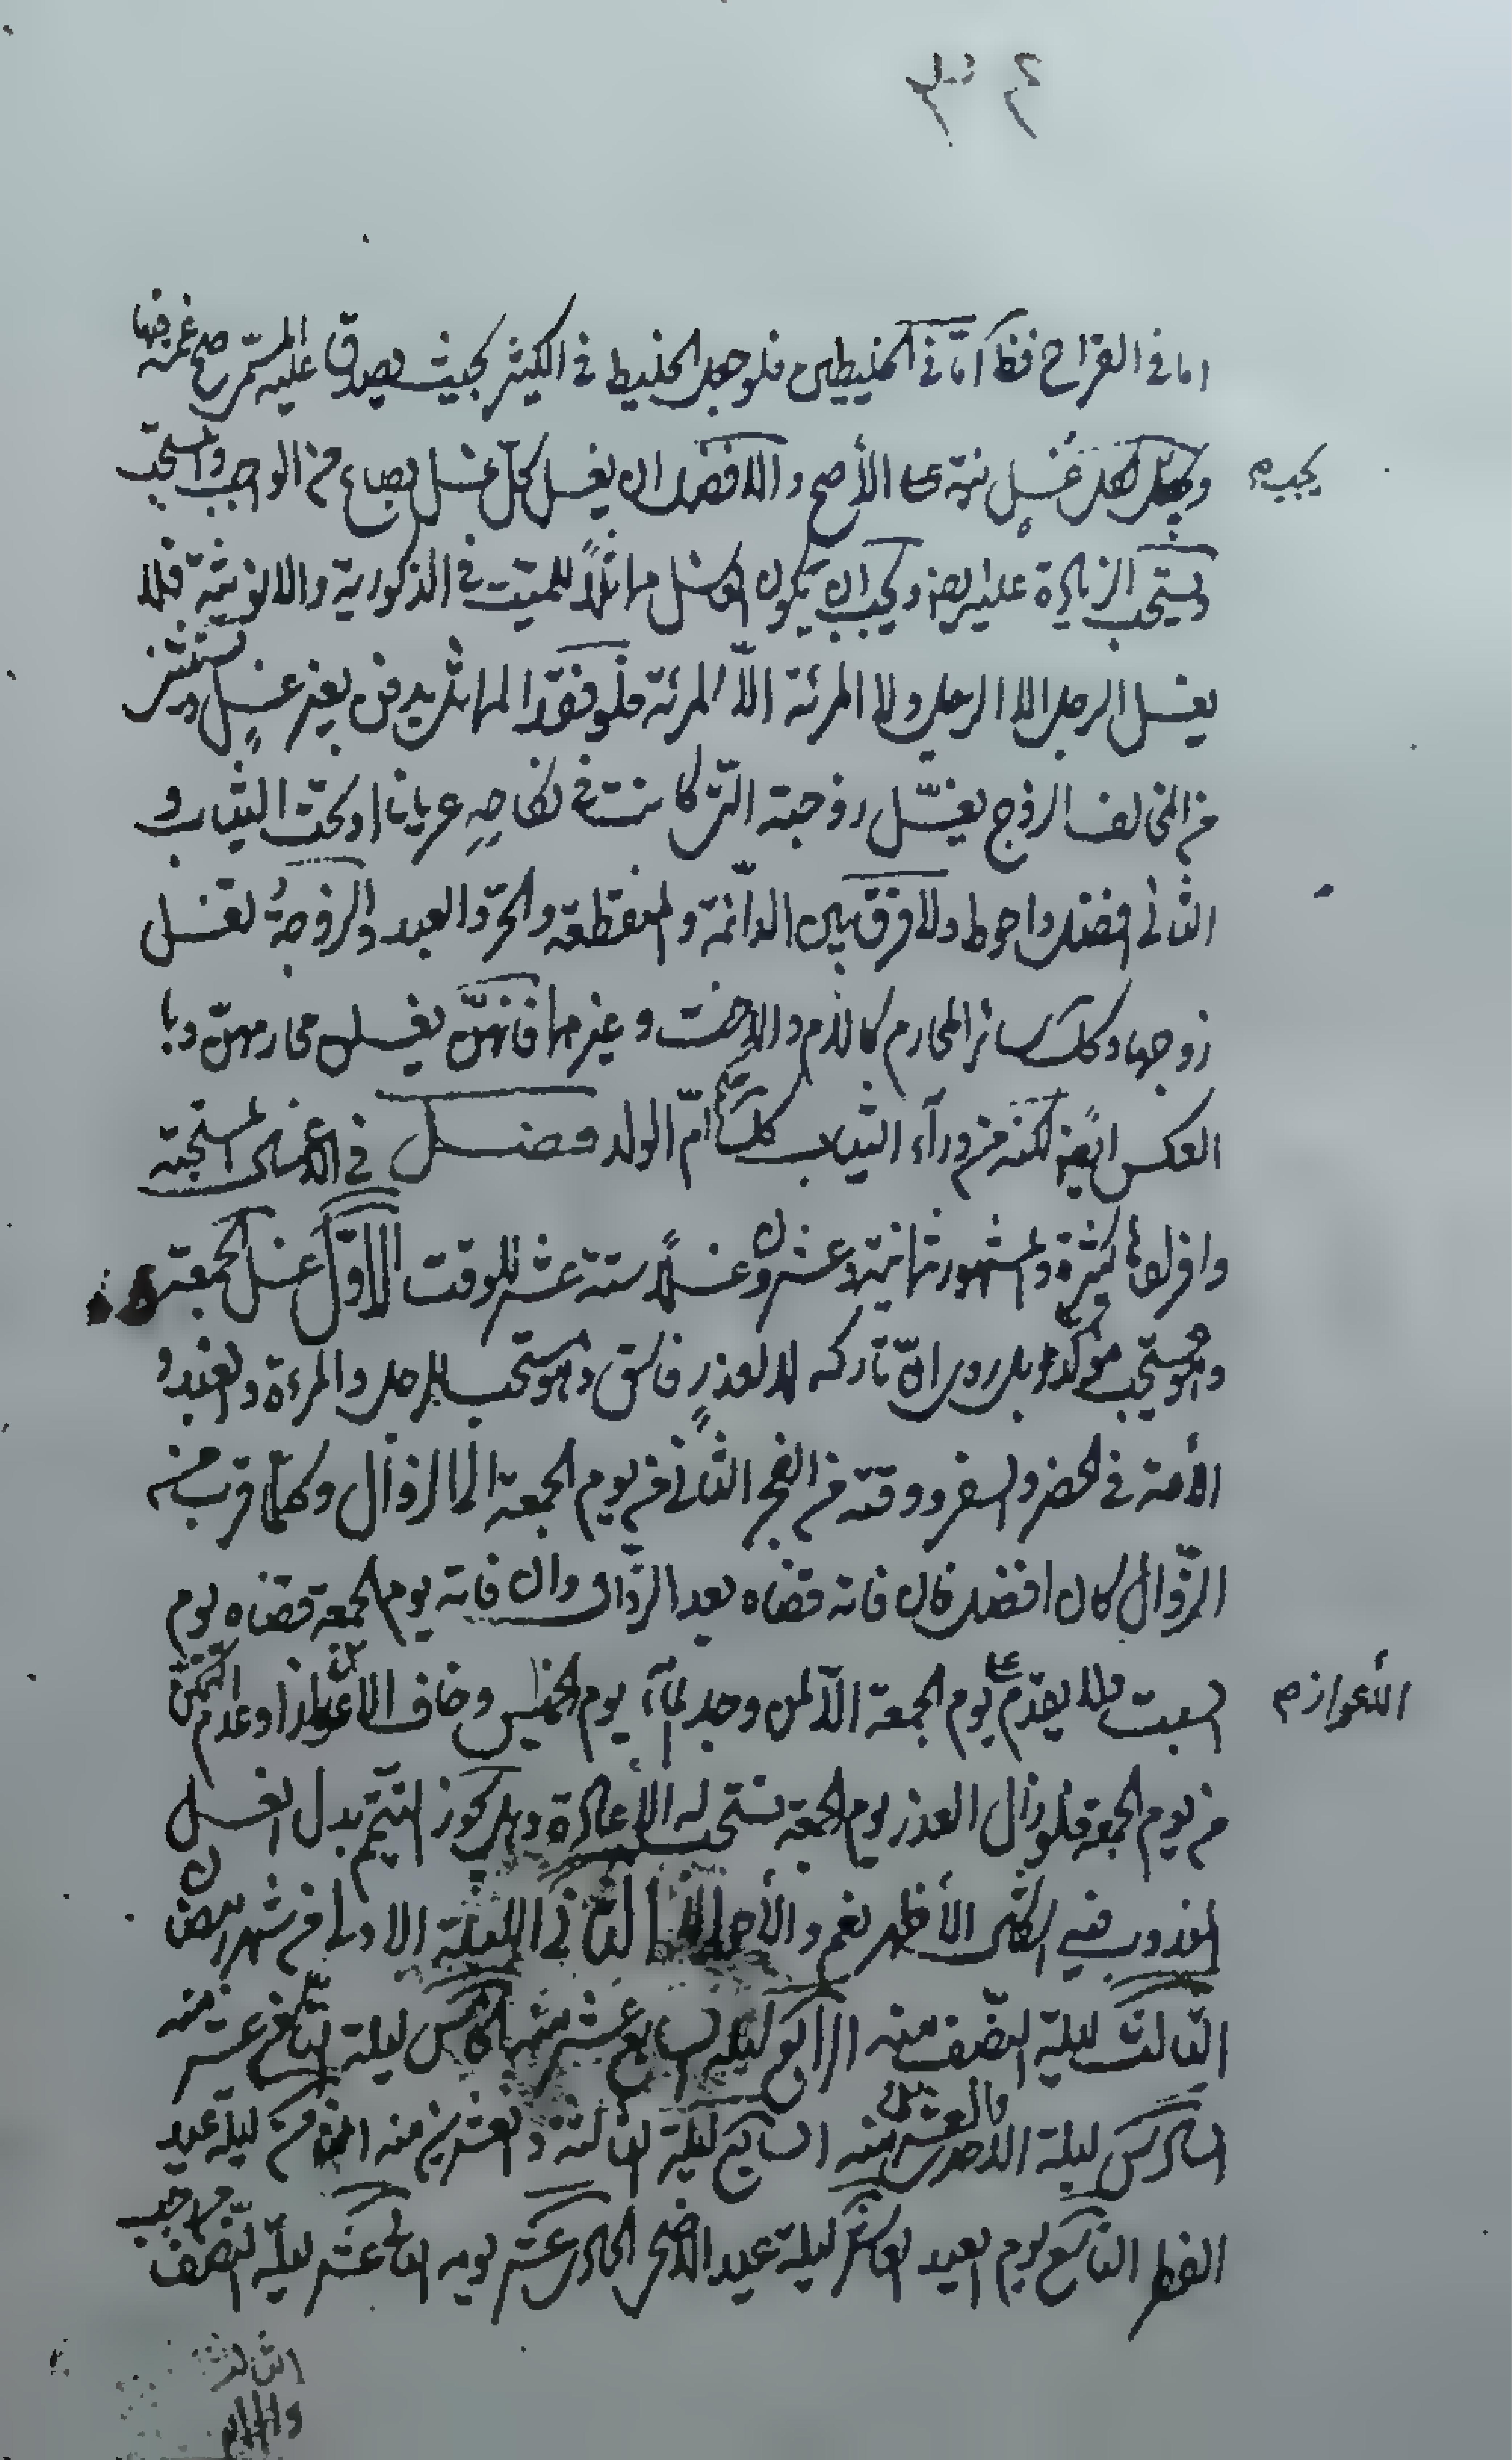 اما فى القراح فظ اما فى الخليطين فلو جعل الخليط فى الكثير بحيث يصدق عليه المستمر صح غمره فيها
ولكل غسل نية على الأصح والافضل ان يغسل كل غسل بصاع من الواجب والمستحب
يجب م
ويستحب الزيادة عليه ايضا ويجب ان يكون الغاسل مماثلاً للميت فى الذكورية والانوثية فلا
يغسل الرجل الا الرجل ولا المرئة الاّ المرئة فلو فقد المماثل يدفن بغير غسلٍ ويستثنى
من المخالف الزوج يغسّل زوجته التى كانت فى نكاحه عريانا او تحت الثياب و
الثانى افضل واحوط ولا فرق بين الدائمة والمنقطعة والحرّ والعبد والزوجة تغسل
زوجها وكك سائر المحارم كالام والاخت وغيرهما فانهنّ يغسلن محارمهنّ وبا
العكس ايضا لكنه من ورآء الثياب كك امّ الولد فصل فى الاغسال المستحبة
وافرادها كثيرة والمشهور ثمانية وعشرون غسلاً ستة عشر للوقت الاوّل غسل الجمعة
وهو مستحب مؤكد بل روى انّ تاركه لا لعذرٍ فاسق وهو مستحب للرجل والمرءة والعبد و
الأمة فى الحضر والسفر ووقته من الفجر الثانى من يوم الجمعة الى الزوال وكلما قرب منه
الزّوال كان افضل فان فاته قضاه بعد الزوال وان فاته يوم الجمعة قضاه يوم
السبت ولا يقدم على يوم الجمعة الاّ لمن وجد المآء يوم الخميس وخاف الاعواز او عدم التمكن
الأعواز م
من يوم الجمعة فلو زال العذر يوم الجمعة تستحب له الإعادة وهل يجوز التيمم بدل الغسل
المندوب فيه اشكال الأظهر نعم والأحوط لا الثانى الليلة الاولى من شهر رمضان
الثالث ليلة النصف منه الرابع ليلة السابع عشر منه الخامس ليلة التاسع عشر منه
السادس ليلة الاحدى والعشرين منه السابع ليلة الثالثة والعشرين منه الثامن ليلة عيد
الفطر التاسع يوم العيد العاشر ليلة عيد الاضحى الحادى عشر يومه الثانى عشر ليلة النصف من رجب
الثالث